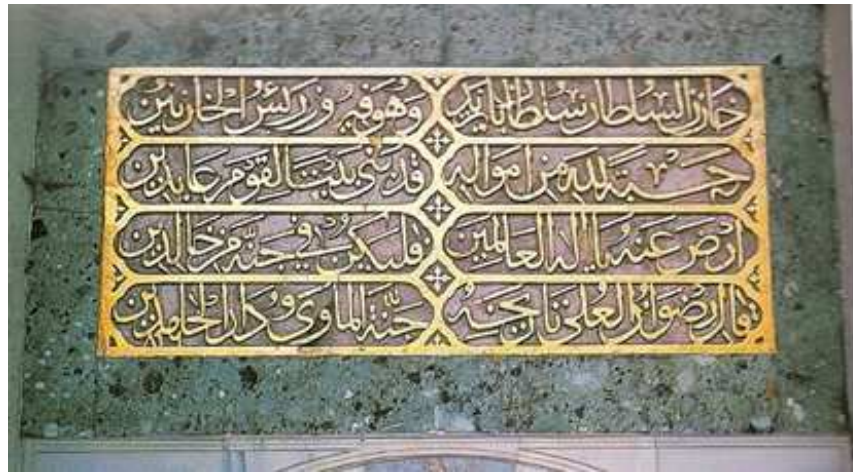 خازن السلطان سلطان بايزيد وهو فيروز رئيس الخازنين
حسبة لله من امواله قد بنى بيتا لقوم عابدين
ارض عنه يا اله العالمين فليكن في جنة من خالدين
قال رضوان العلى تاريخه جنة الماوى ودار الحامدين